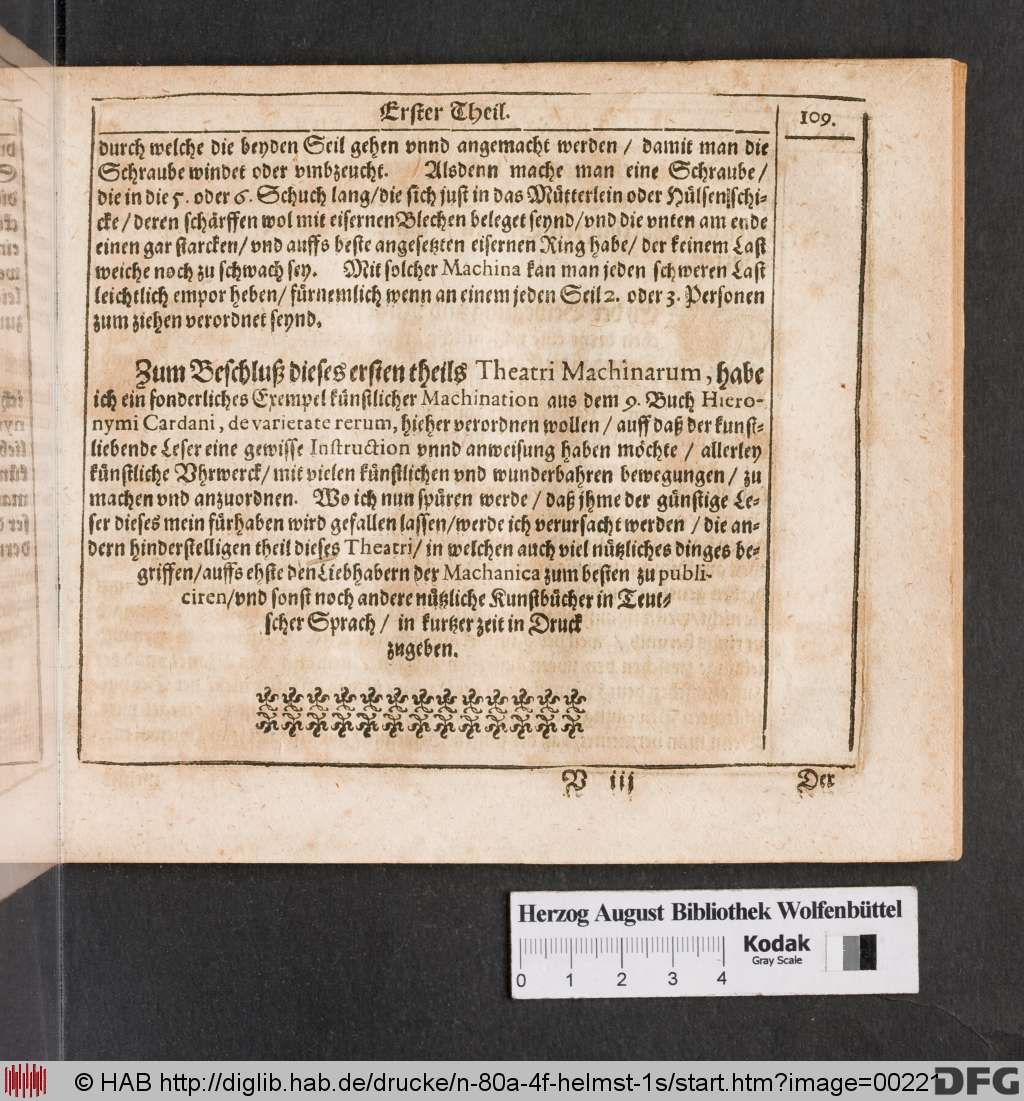 Erster Theil.
109.
durch welche die beyden Seil gehen vnnd angemacht werden / damit man die
Schraube windet oder vmbzeucht. Alsdenn mache man eine Schraube /
die in die 5. oder 6. Schuch lang / die sich just in das Mütterlein oder Hülsen schi-
cke / deren schärffen wol mit eisernen Blechen beleget seynd / vnd die vnten am ende
einen gar starcken / vnd auffs beste angesetzten eisernen Ring habe / der keinem Last
weiche noch zu schwach sey. Mit solcher Machina kan man jeden schweren Last
leichtlich empor heben / fürnemlich wenn an einem jeden Seil 2. oder 3. Personen
zum ziehen verordnet seynd.
Zum Beschluß dieses ersten theils Theatri Machinarum, habe
ich ein sonderliches Exempel künstlicher Machination aus dem 9. Buch Hiero-
nymi Cardani, de varietate rerum, hieher verordnen wollen / auff daß der kunst-
liebende Leser eine gewisse Instruction vnnd anweisung haben möchte / allerley
künstliche Vhrwerck / mit vielen künstlichen vnd wunderbahren bewegungen / zu
machen vnd anzuordnen. Wo ich nun spüren werde / daß jhme der günstige Le-
ser dieses mein fürhaben wird gefallen lassen / werde ich verursacht werden / die an-
dern hinderstelligen theil dieses Theatri / in welchen auch viel nützliches dinges be-
griffen / auffs ehste den Liebhabern der Machanica zum besten zu publi-
ciren / vnd sonst noch andere nützliche Kunstbücher in Teut-
scher Sprach / in kurtzer zeit in Druck
zugeben.
P iij
Der
Herzog August Bibliothek Wolfenbüttel
Kodak
Gray Scale
0 1 2 3 4
© HAB http://diglib.hab.de/drucke/n-80a-4f-helmst-1s/start.htm?image=00221
DFG